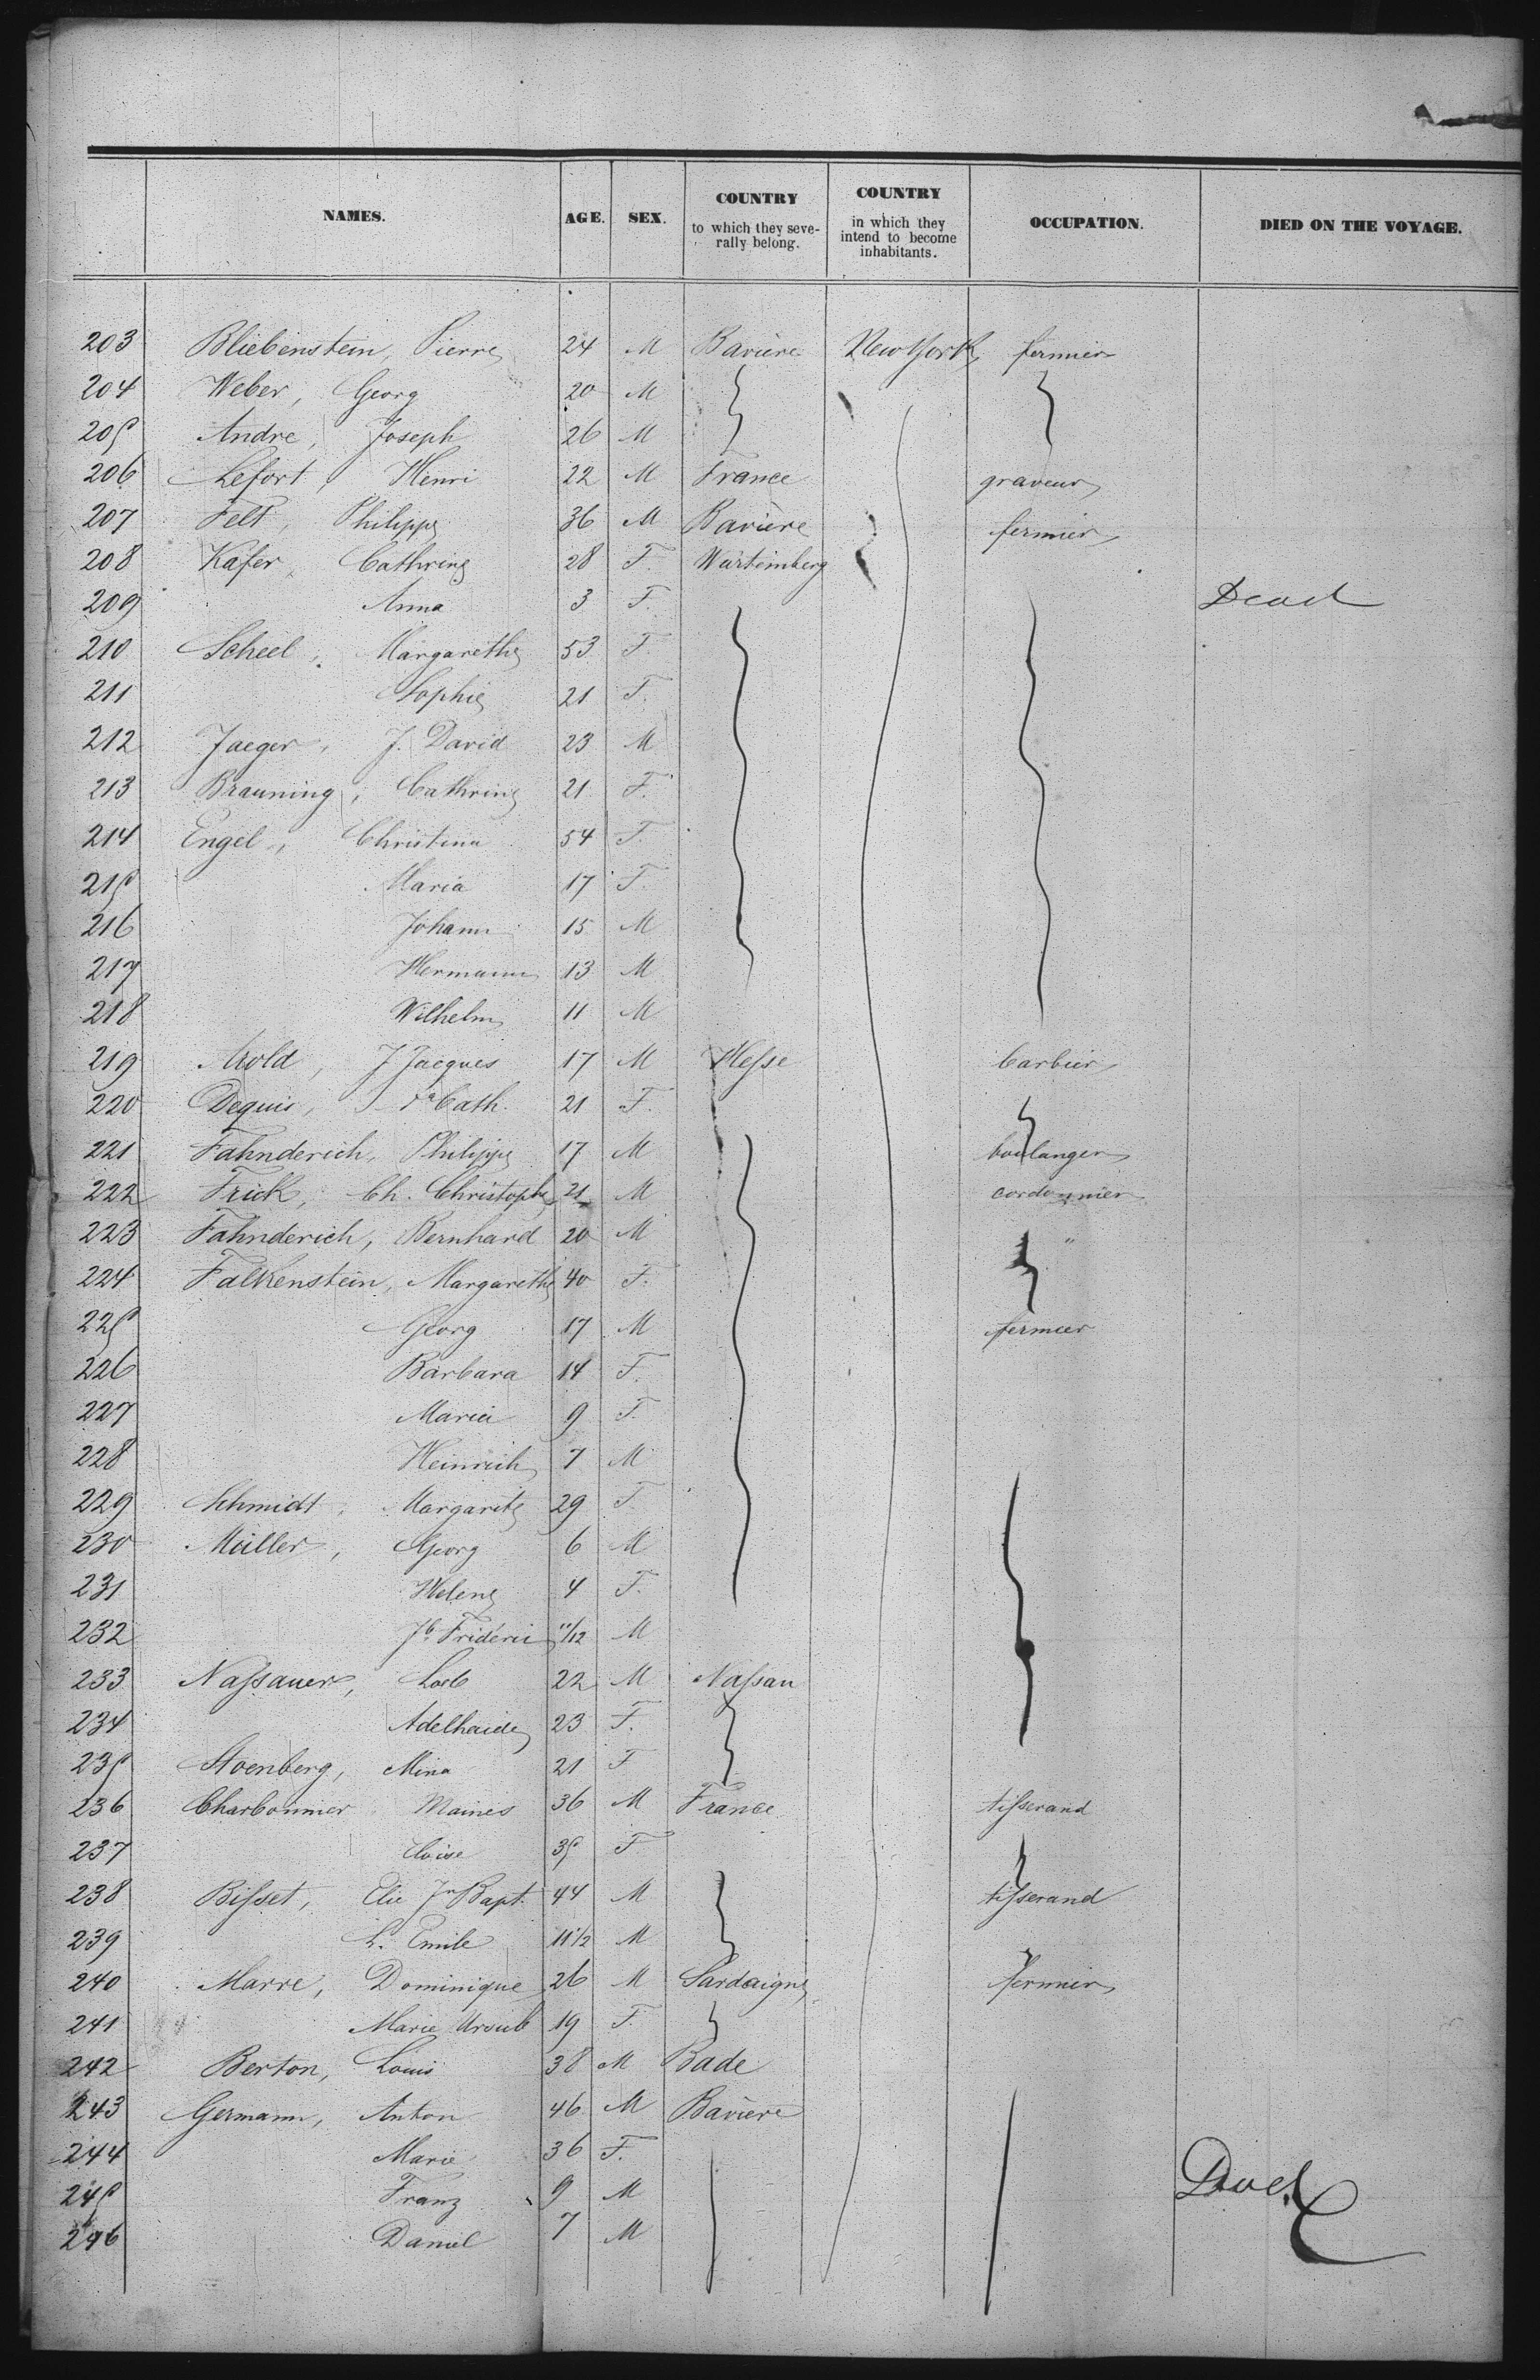 NAMES. AGE. SEX. COUNTRY to which they seve- rally belong. COUNTRY in which they intend to become inhabitants. OCCUPATION. DIED ON THE VOYAGE.
203 Bliebenstein, Pierre 24 M Bavière New York fermier
204 Weber, Georg 20 M
205 Andre, Joseph 26 M
206 Lefort, Henri 22 M France graveur
207 Felt, Philippe 36 M Bavière fermier
208 Kafer, Cathrine 28 F. Würtemberg
209 Anna 3 F. Dead
210 Scheel, Margarethe 53 F.
211 Sophie 21 F.
212 Jaeger, J. David 23 M
213 Brauning, Cathrine 21 F.
214 Engel, Christina 54 F.
215 Maria 17 F.
216 Johann 15 M
217 Hermann 13 M
218 Wilhelm 11 M
219 Arold, J Jacques 17 M Hesse barbier
220 Dequis, Cath. 21 F.
221 Fahnderich, Philippe 17 M boulanger
222 Frick, Ch. Christophe 21 M cordonnier
223 Fahnderich, Bernhard 20 M "
224 Falkenstein, Margarethe 40 F.
225 Georg 17 M fermier
226 Barbara 14 F.
227 Maria 9 F.
228 Heinrich 7 M
229 Schmidt, Margarite 29 F.
230 Müller, Georg 6 M
231 Helene 4 F.
232 Jb. Frideric 11/12 M
233 Nassauer, Loeb 22 M Nassau
234 Adelhaide 23 F.
235 Stoenberg, Mina 21 F
236 Charbonnier Maines 36 M France tisserand
237 35 F
238 Bisset, Elie Jn Bapt. 44 M tisserand
239 L. Emile 11 1/2 M
240 Marre, Dominique 26 M Sardaigne fermier
241 Marie Ursule 19 F.
242 Berton, Louis 38 M Bade
243 Germann, Anton 46 M Bavière
244 Marie 36 F.
245 Franz 9 M
246 Daniel 7 M